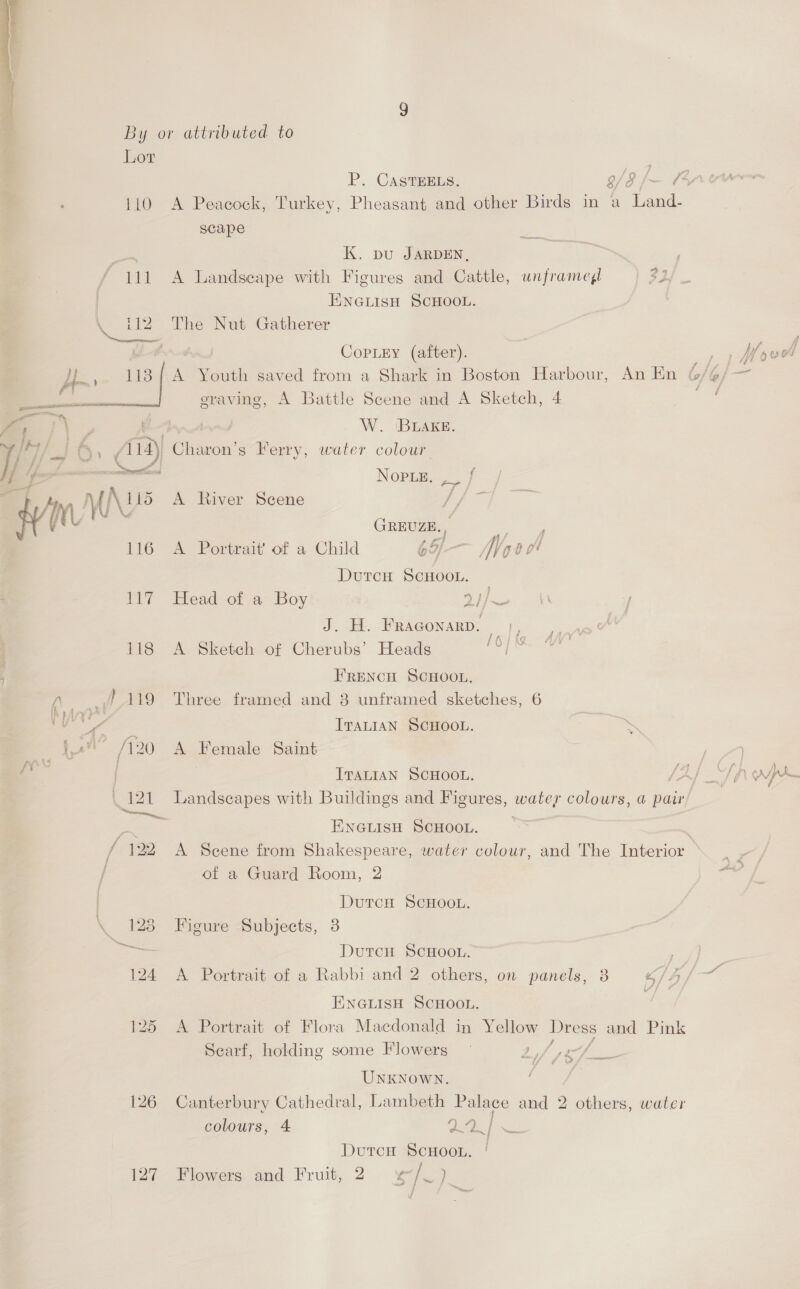 9
By or attributed to
Lot
P. CASTEELS. 8/8/-
110 A Peacock, Turkey, Pheasant and other Birds in a Land-
scape
K. DU JARDEN,
111 A Landscape with Figures and Cattle, unframed 32/
ENGLISH SCHOOL.
112 The Nut Gatherer
COPLEY (after). Wood
113 A Youth saved from a Shark in Boston Harbour, An En 6/6/-
graving, A Battle Scene and A Sketch, 4
W. BLAKE.
114 Charon's Ferry, water colour
NOPLE,
115 A River Scene
GREUZE.,
116 A Portrait of a Child 65/- Wood
DUTCH SCHOOL.
117 Head of a Boy 21/-
J. H. FRAGONARD.
118 A Sketch of Cherubs' Heads
FRENCH SCHOOL.
119 Three framed and 3 unframed sketches, 6
ITALIAN SCHOOL.
120 A Female Saint
ITALIAN SCHOOL.
121 Landscapes with Buildings and Figures, water colours, a pair
ENGLISH SCHOOL.
122 A Scene from Shakespeare, water colour, and The Interior
of a Guard Room, 2
DUTCH SCHOOL.
123 Figure Subjects, 3
DUTCH SCHOOL.
124 A Portrait of a Rabbi and 2 others, on panels, 3
ENGLISH SCHOOL.
125 A Portrait of Flora Macdonald in Yellow Dress and Pink
Scarf, holding some Flowers
UNKNOWN.
126 Canterbury Cathedral, Lambeth Palace and 2 others, water
colours, 4 22/-
DUTCH SCHOOL.
127 Flowers and Fruit, 2